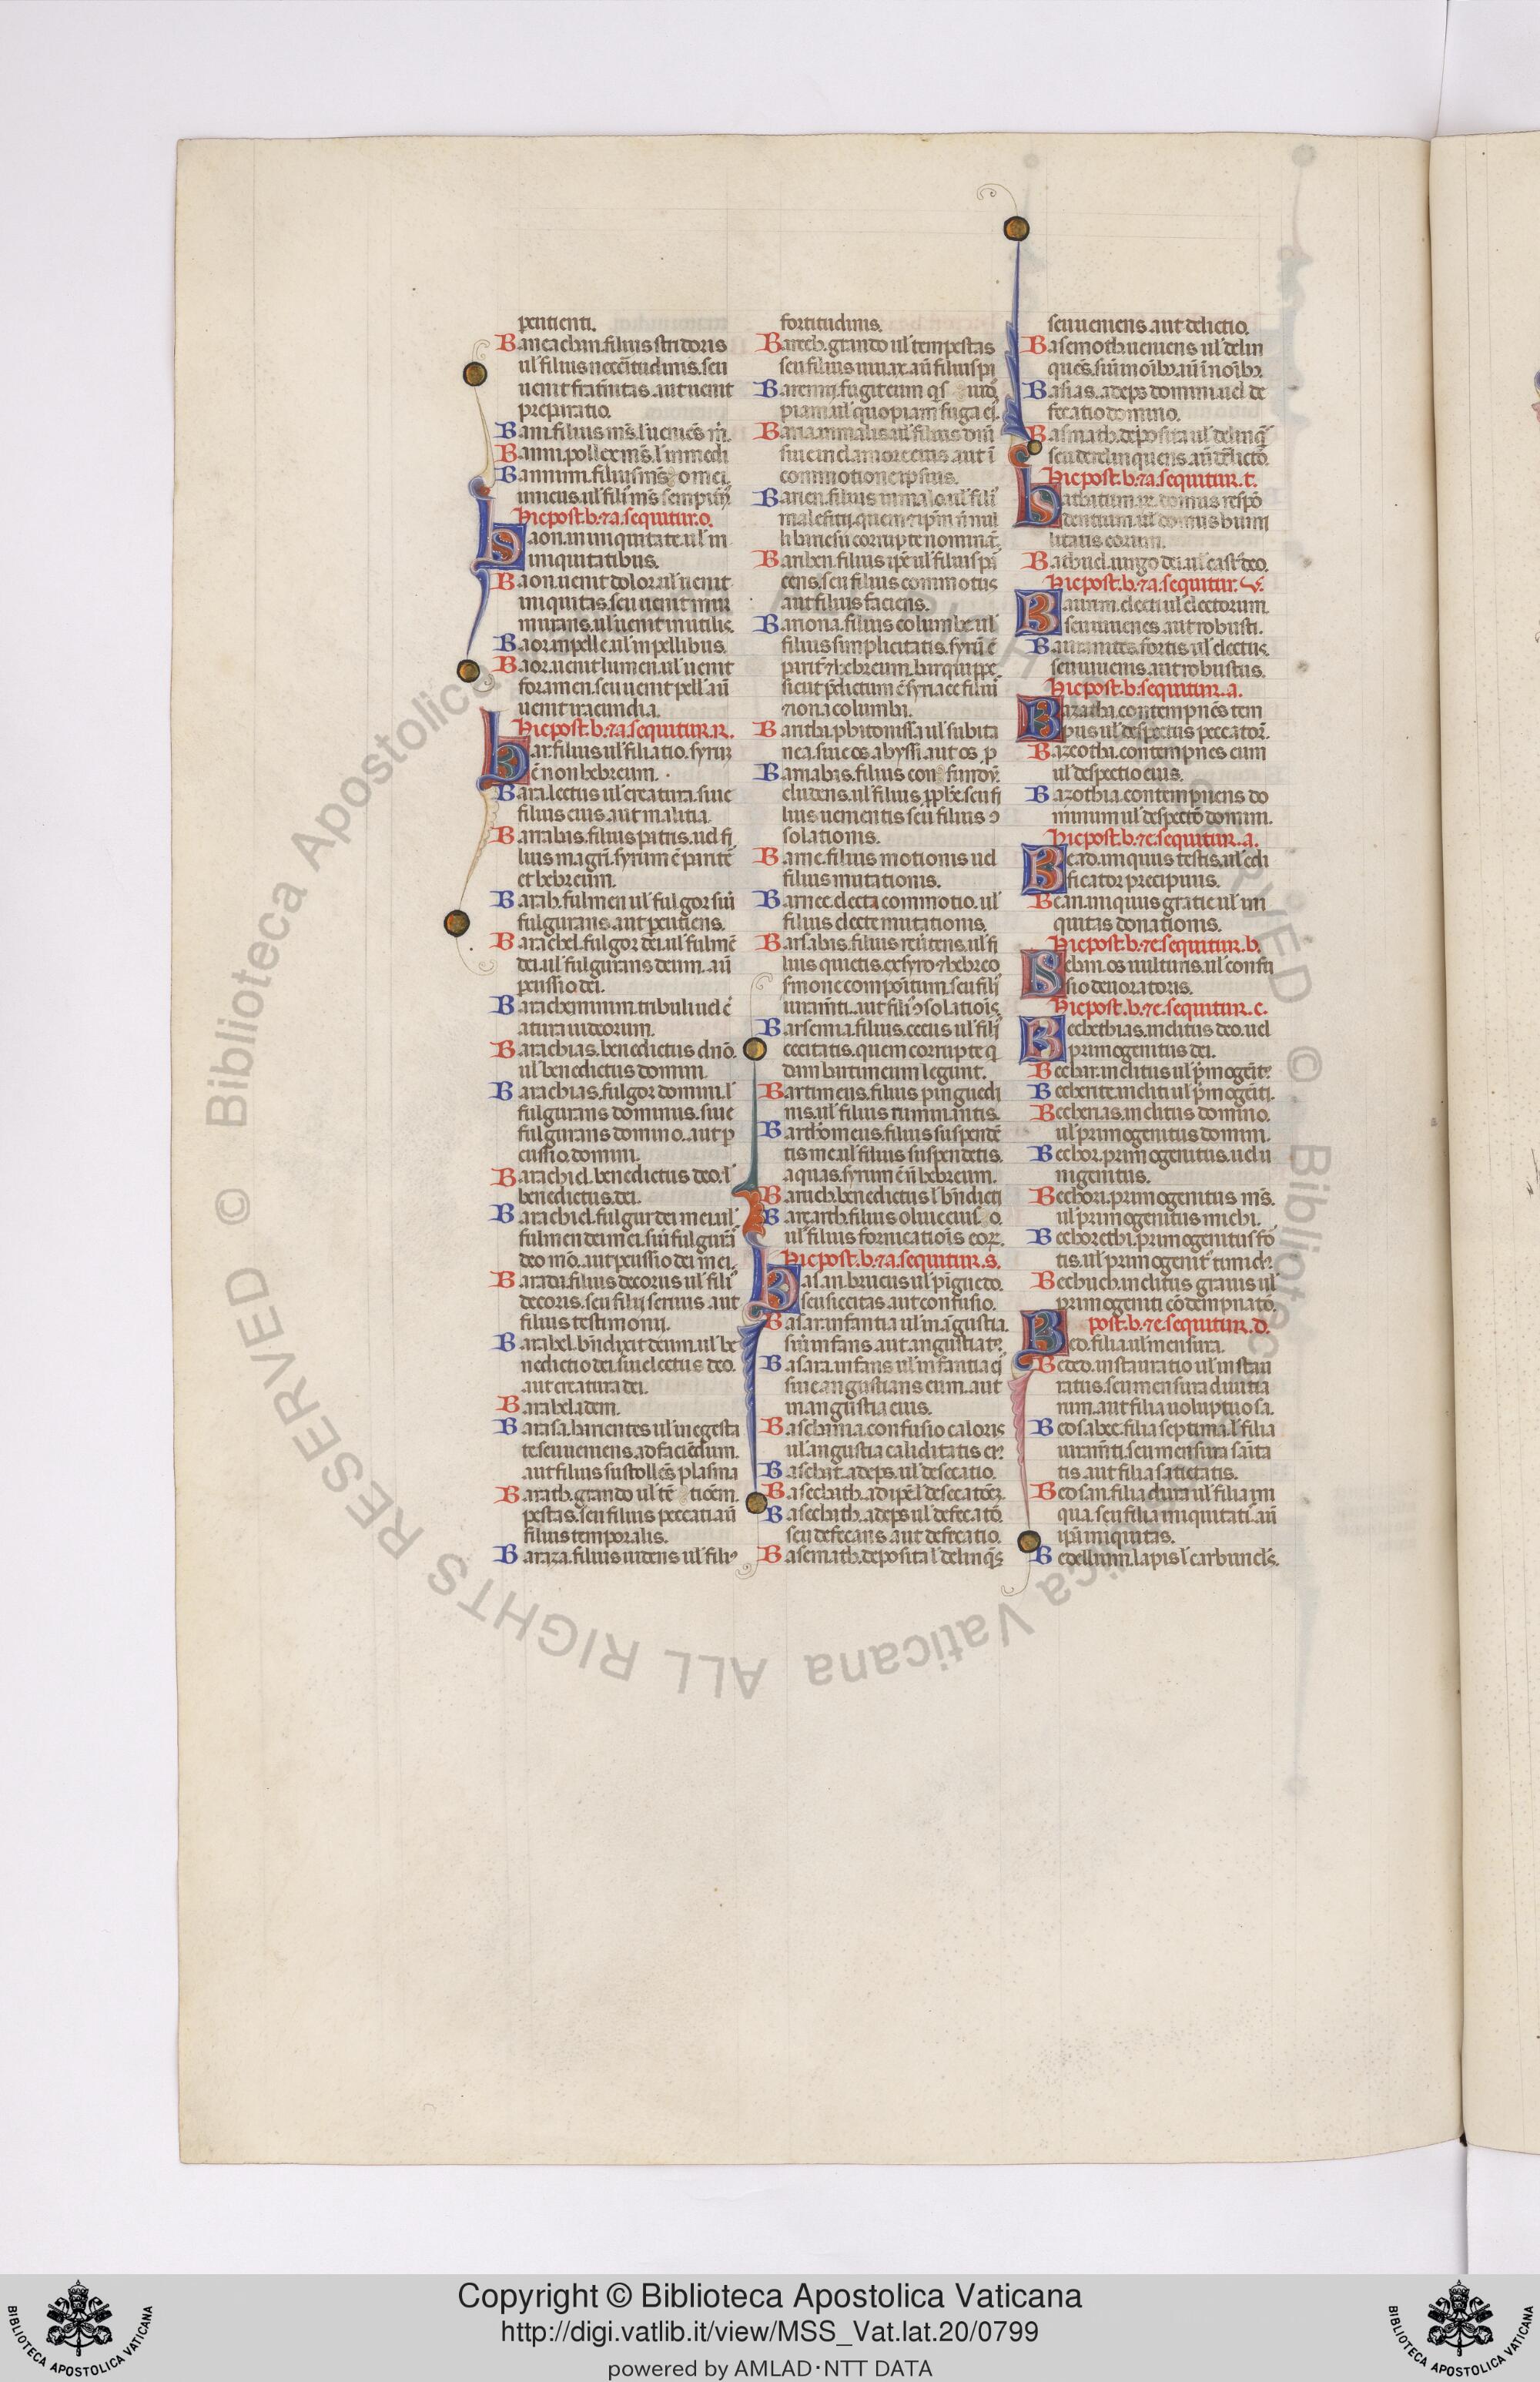 peutienti.
Baneachim. filius stridoris
ul' filius necc̄itudinis. seu
uenit frat̄nitas. aut uenit
preparatio.
Bani. filius m̄s. l' ueniēs m̄.
Banni. pollex m̄s. l' in medi
umcus. ul' fili' m̄s sempit̄ni
Hic post. b. ⁊ a. sequitur. o.
Baon. in iniquitate. ul' in
iniquitatibus.
Baon. uenit dolor. ul' uenit
iniquitas. seu uenit mur
murans. ul' uenit inutilis.
Baor. in pelle. ul' in pellibus.
Baor. uenit lumen. ul' uenit
foramen. seu uenit pell' aū
uenit iracundia.
Hic post. b. ⁊ a. sequitur. R.
Bar. filius ul' filiatio. syrum
ē non hebreum.
Bara. lectus ul' creatura. siue
filius eius. aut malitia.
Barrabas. filius patris. uel fi
lius magri. syrum ē pariter
et hebreum.
Barab. fulmen ul' fulgor siū
fulgurans. aut peutiens.
Barachel. fulgor dei. ul' fulmē
dei. ul' fulgurans deum. aū
peussio dei.
Barachennium. tribuli uel c̄
atura iudeorum.
Barachias. benedictus dn̄o.
ul' benedictus domini.
Barachias. fulgor domini. l'
fulgurans dominus. siue
fulgurans domino. aut p
cussio. domini.
Barachiel. benedictus deo. l'
benedictus. dei.
Barachiel. fulgur dei mei. ul'
fulmen dei mei. siū fulgurās
deo m̄o. aut peussio dei mei.
Barada. filius decorus ul' fili'
decoris. seu filij seruus. aut
filius testimonij.
Barahel. bn̄dixit deum. ul' be
nedictio dei. siue lectus deo.
aut creatura dei.
Barabel. idem.
Barasa. barientes ul' in egesta
te seu ueniens. ad faciēdum.
aut filius sustollēs plasma
Barath. grando ul' tē ticēm.
pestas. seu filius peccati aū
filius temporalis.
Baraza. filius uidens ul' fili'
fortitudinis.
Barech. grando ul' tempestas
seu filius
Baremij. fugit eum
piam. ul' quopiam fuga ei'.
Baria. in malis. ul' filius
siue in clamore eius. aut i
commotione ipsius.
Barien. filius in malo. ul' fili'
malefitij. quem ⁊ ip̄m n̄ nul
li bariesū corrupte nominā.
cens. seu filius commotus
aut filius faciens.
Bariona. filius columbe. ul'
filius simplicitatis. syrū ē
parit̄ ⁊ hebreum. bar quippe
sicut p̄dictum ē syra ee filiū
⁊ iona columbā.
Barithi. phitonissa. ul' subita
nea. siue os abyssi. aut os p
cludens. ul' filius pphē. seu fi
lius uenientis seu filius ↄ
solationis.
Barne. filius motionis uel
filius mutationis.
Barnee. electa commotio. ul'
filius electe mutationis.
Barsabas. filius reūtens. ul' fi
lius quietis. ex syro ⁊ hebreo
sermone compoītum. seu filij
iuramēti. aut fili' ↄsolatiōis.
Barsemia. filius. cecus ul' filij
cecitatis. quem corrupte q
dam bartimeum legunt.
Bartimeus. filius pinguedi
nis. ul' filius ruminantis.
Bartholomeus. filius suspendē
tis me. ul' filius suspendētis.
aquas. syrum ē n̄ hebreum.
Baruch. benedictus l' bn̄dicti
ul' filius fornicatiōis eoꝝ.
Hic post. b. ⁊ a. sequitur. s.
Basan. brucus ul' pīguedo.
seu siccitas. aut confusio.
Basar. infantia ul' in āgustia.
siū infans. aut angustiate.
Basara. infans ul' infantia ei'
siue angustians eum. aut
in angustia eius.
Baschama. confusio caloris
ul' angustia caliditatis ei'.
Baschat. adeps. ul' desecatio.
Basechath. adipē l' desecatōēz.
Basechath. adeps ul' defecatō.
seu defecans. aut defecatio.
Basemath. deposita l' delinqs̄
seu ueniens. aut delictio.
Basemoth. ueniens ul' delin
quēs.
Basias. adeps domini. uel de
fecatio domino.
Basmath. deposita ul' delinq̄
seu derelinquens. aū dēlicto.
Hic post. b. ⁊ a. sequitur. t.
dentium. ul' domus humi
litatis eorum.
Bathuel. uirgo dei. ul' east' deo.
Hic post. b. ⁊ a. sequitur. V.
Baurim. electi ul' electorum.
seu iuuenes. aut robusti.
Bauramites. fortis ul' electus.
seu iuuenis. aut robustus.
Hic post. b. sequitur. a.
Bazatha. contempnēs tem
pus ul' despectus peccator̄.
Bazeotha. contempnes eum
ul' despectio eius.
Bazothia. contempnens do
minum ul' despectō domini.
Hic post. b. ⁊ e. sequitur. a.
Bead. iniquus testis. ul' edi
ficator precipuus.
Bean. iniquus gratie ul' ini
quitas donationis.
Hic post. b. ⁊ e. sequitur. b.
Bebin. os uulturis. ul' confu
sio deuoratoris.
Hic post. b. ⁊ e. sequitur. c.
Becbethias. inclitus deo. uel
primogenitus dei.
Bechar. inclitus ul' p̄mogēit'.
Becherite. incliti ul' p̄mogēiti.
Becherias. inclitus domino.
ul' primogenitus domini.
Bechor. primogenitus. uel u
nigenitus.
Bechora. primogenitus m̄s.
ul' primogenitus michi.
Bechorethi. primogenitus fō
tis. ul' primogenit' timich'.
Bechuch. inclitus grauis ul'
primogeniti cōdempnatō.
post. b. ⁊ e. sequitur. d.
Bed. filia. ul' mensura.
Beded. instauratio ul' instau
ratus. seu mensura diuitia
rum. aut filia uoluptuosa.
Bedsabee. filia septima. l' filia
iuramēti. seu mensura sāita
tis. aut filia satietatis.
Bedsan. filia dura ul' filia ini
qua. seu filia iniquitati' aū
iniquitas.
Bedellium. lapis l' carbuncl's.
Copyright © Biblioteca Apostolica Vaticana
http://digi.vatlib.it/view/MSS_Vat.lat.20/0799
powered by AMLAD·NTT DATA
BIBLIOTECA APOSTOLICA VATICANA
BIBLIOTECA APOSTOLICA VATICANA
© Biblioteca Apostolica Vaticana ALL RIGHTS RESERVED